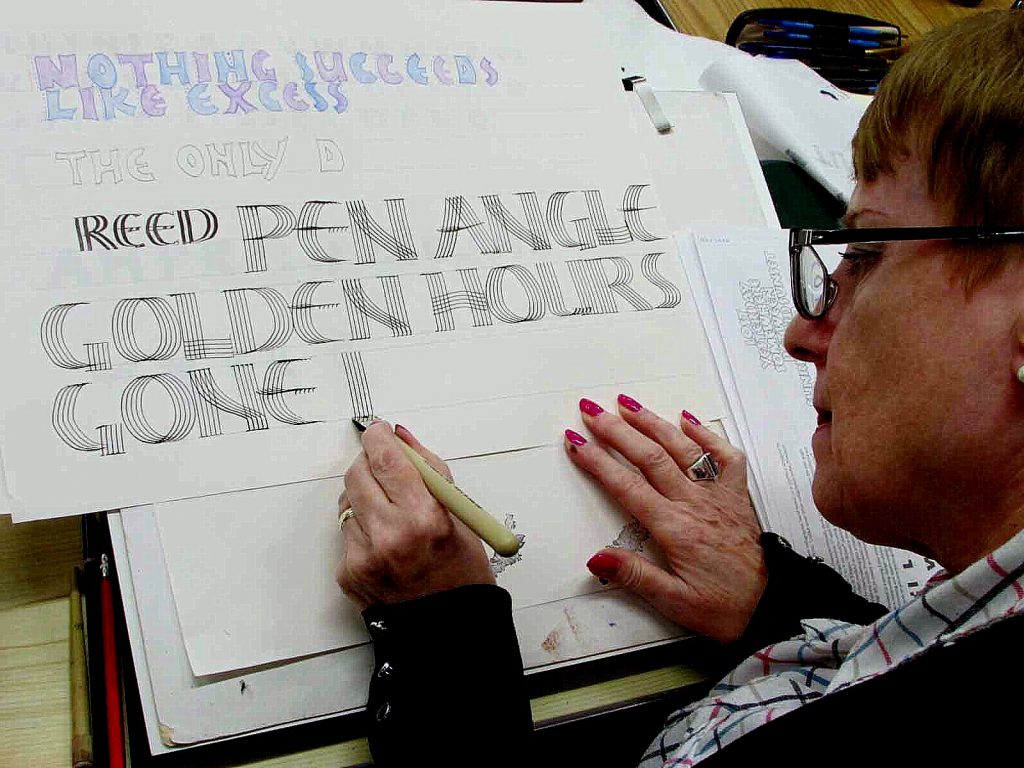 NOTHING SUCCEEDS
LIKE EXCESS
THE ONLY D
REED PEN ANGLE
GOLDEN HOURS
GONE I